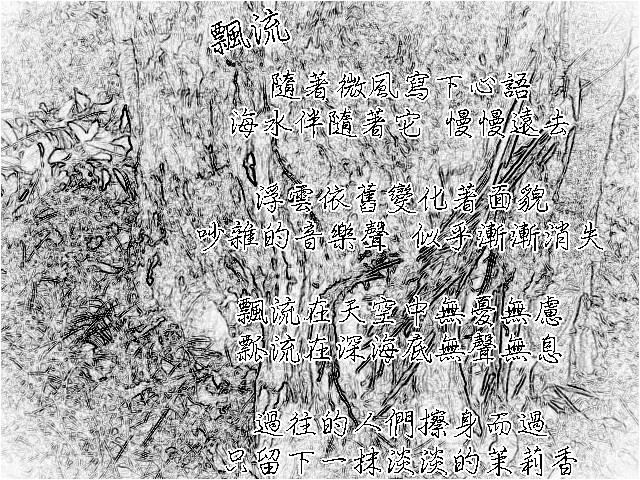 飄流
隨著微風寫下心語
海水伴隨著它 慢慢遠去
浮雲依舊變化著面貌
吵雜的音樂聲 似乎漸漸消失
飄流在天空中無憂無慮
飄流在深海底無聲無息
過往的人們擦身而過
只留下一抹淡淡的茉莉香